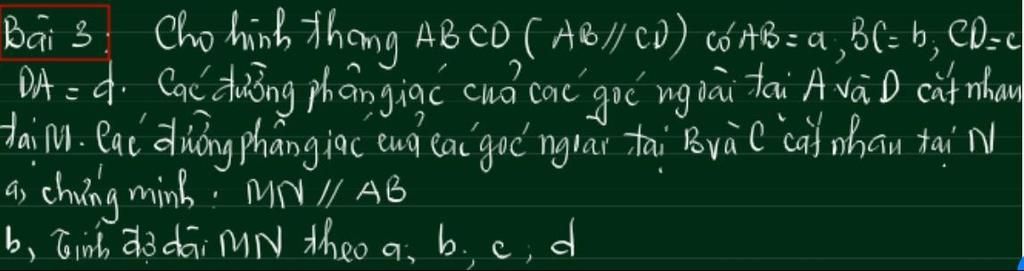 Bài 3: Cho hình thang ABCD (AB//CD) có AB = a, BC = b, CD = c
DA = d. Các đường phân giác của các góc ngoài tại A và D cắt nhau
tại M. Các đường phân giác của các góc ngoài tại B và C cắt nhau tại N
a, chứng minh: MN // AB
b, Tính độ dài MN theo a, b, c, d